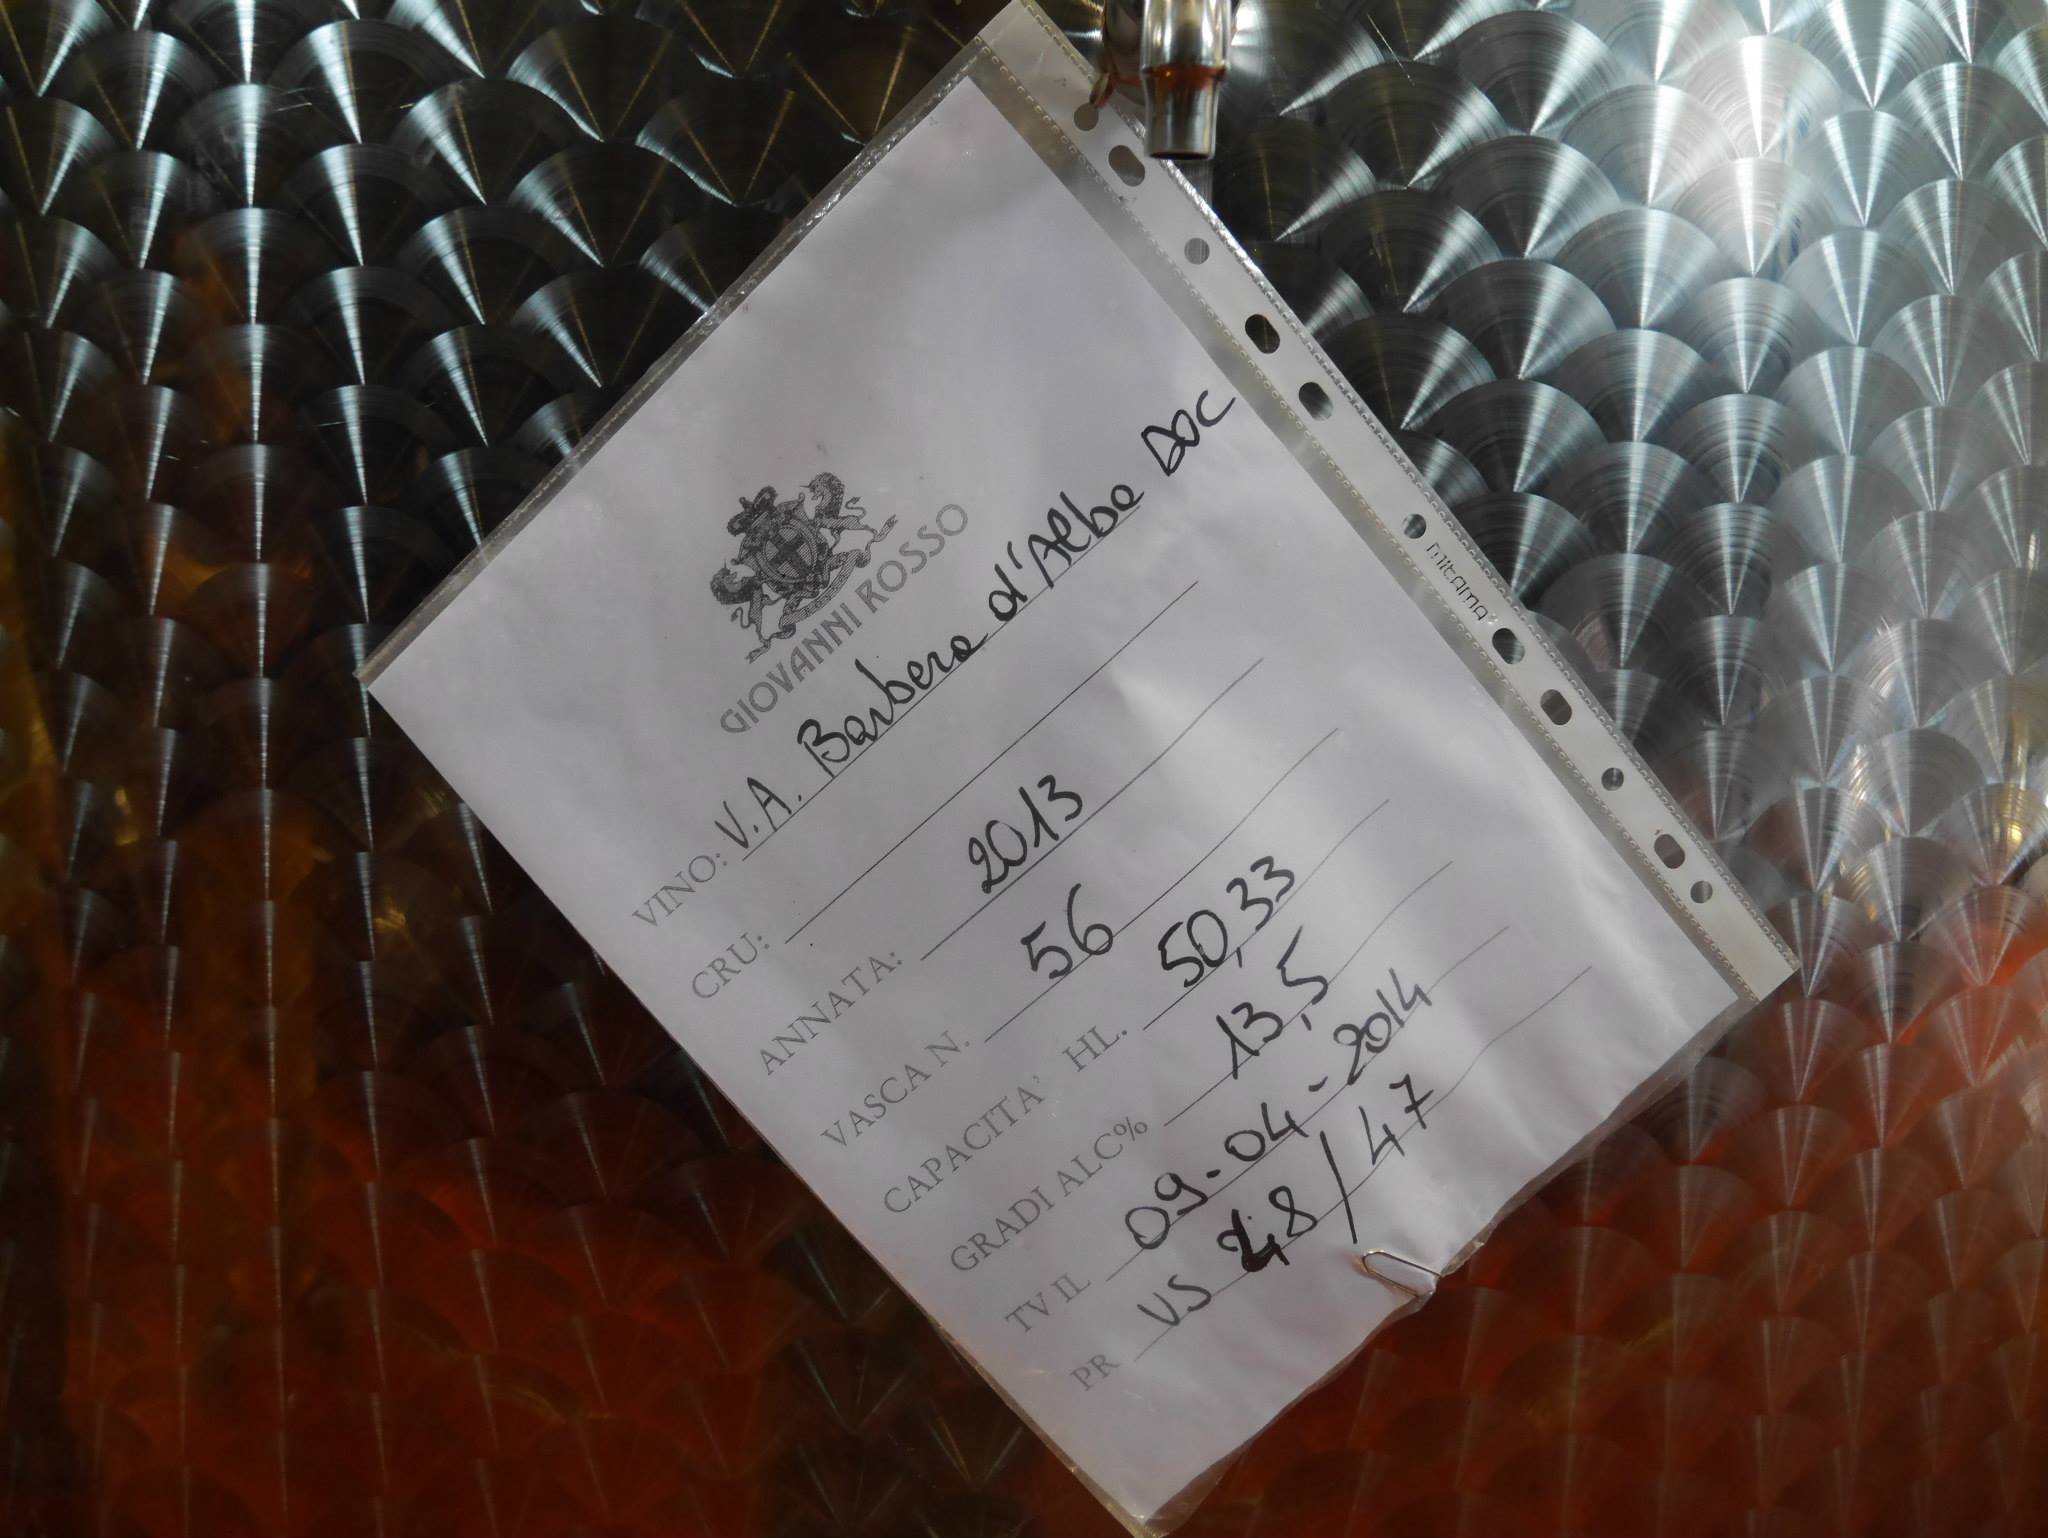 GIOVANNI ROSSO
VINO: V.A. Barbera d'Alba DOC
CRU:
ANNATA: 2013
VASCA N. 56
CAPACITA' HL. 50,33
GRADI ALC% 13,5
TV IL 09-04-2014
PR VS 48/47
mitama